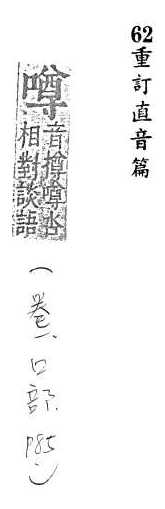 62重訂直音篇
噂
音撙噂沓
相對談語
(卷一口部.P85)